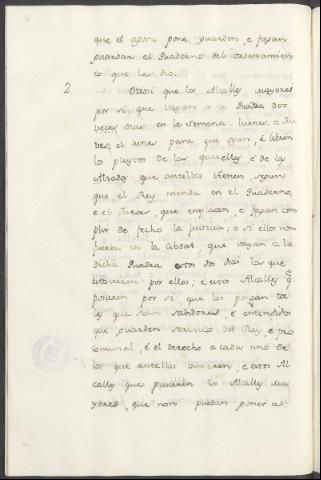 que el agora pone, guarden e fagan
guardar el Quaderno del ordenamien
to que les dio.
2. Otrosi que los Alcalles mayores
por si que vayan a la Quadra dos
veces dias en la semana. lunes, o Jue
ves, el lunes para que oyan, e libren
los pleytos de las querellas e de las
Alzadas que antellos vienen, segun
que el Rey manda en el Quaderno,
e el Jueves, que emplacen, e fagan com
plir de fecho la justicia; e si ellos non
fueren en la Cibdat, que vayan a la
dicha Quadra estos dos dias los que
estovieren por ellos; e estos Alcalles q
posieren por si, que los pongan ta
les que sean sabidores, e entendidos
que guarden servicio del Rey, e pro
comunal, e el derecho a cada uno de
los que antellos vinieren; e estos Al
calles que pusieren los Alcalles Ma
yores, que non puedan poner a